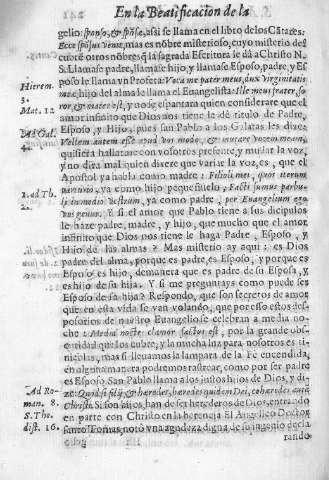 En la Beatificacion de la
gelio: sponso, & sponsæ, asi se llama en el libro de los Cãtares:
Ecce sponsus venit, mas es nõbre misterioso, cuyo misterio des
cubrẽ otros nõbres q̃ la sagrada Escritura le dà a Christo N.
S. Llamase padre, llamase hijo, y llamase Esposo, padre, y Es
poso le llama vn Profeta: Voca me pater meus, dux virginitatis
meæ, hijo del alma le llama el Euangelista: Ille meus frater, so-
ror, & mater est, y no se espantara quien considerare que el
amor infinito que Dios nos tiene le dè titulo de Padre,
Esposo, y Hijo, pues san Pablo a los Galatas les dize:
Vellem autem esse apud vos modo, & mutare vocem meam,
quisiera hallarme con vosotros presente, y mudar la voz,
y no dira mal quien dixere que variar la voz, es, que el
Apostol ya habla como madre: Filioli mei, quos iterum
parturio, ya como hijo pequeñuelo, Facti sumus paruu-
li in medio vestrum, ya como padre, per Euangelium ego
vos genui. Y si el amor que Pablo tiene a sus dicipulos
le haze padre, madre, y hijo, que mucho que el amor
infinito que Dios nos tiene le haga Padre, Esposo, y
Hijo de las almas? Mas misterio ay aqui: es Dios
padre del alma, porque es padre, es Esposo, y porque es
Esposo es hijo, demanera que es padre de su Esposa, y
es hijo de su hija. Y si me preguntays como puede ser
Esposo de su hija? Respondo, que son secretos de amor
que en esta vida se van volando, que por esso estos des-
posorios de nuestro Euangelio se celebran a media no
che: Media nocte clamor factus est, por la grande obs-
curidad que los cubre, y la mucha luz para nosotros es ti-
nieblas, mas si lleuamos la lampara de la Fè encendida,
en alguna manera podremos rastrear, como por ser padre
es Esposo. San Pablo llama a los justos hijos de Dios, y di-
ze: Quid si filij, & heredes, heredes quidem Dei, coheredes autẽ
Christi. Si son hijos, han de ser herederos de Dios, entrando
en parte con Christo en la herencia. El Angelico Doctor
santo Tomas, notò vna agudeza digna de su ingenio decla
rando
Hierem.
3.
Mat. 12
Ad Gal.
4.
1. ad Th.
2.
Ad Ro-
man. 8.
S. Tho.
dist. 16.